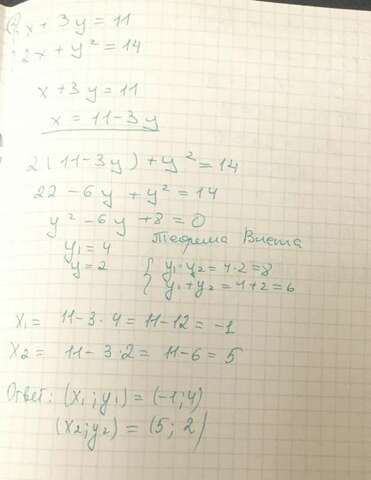 x + 3y = 11
2x + y² = 14
x + 3y = 11
x = 11 - 3y
2(11 - 3y) + y² = 14
22 - 6y + y² = 14
y² - 6y + 8 = 0
y₁ = 4 Теорема Виета
y = 2 { y₁ · y₂ = 4 · 2 = 8
{ y₁ + y₂ = 4 + 2 = 6
x₁ = 11 - 3 · 4 = 11 - 12 = -1
x₂ = 11 - 3 · 2 = 11 - 6 = 5
Ответ: (x₁; y₁) = (-1; 4)
(x₂; y₂) = (5; 2)